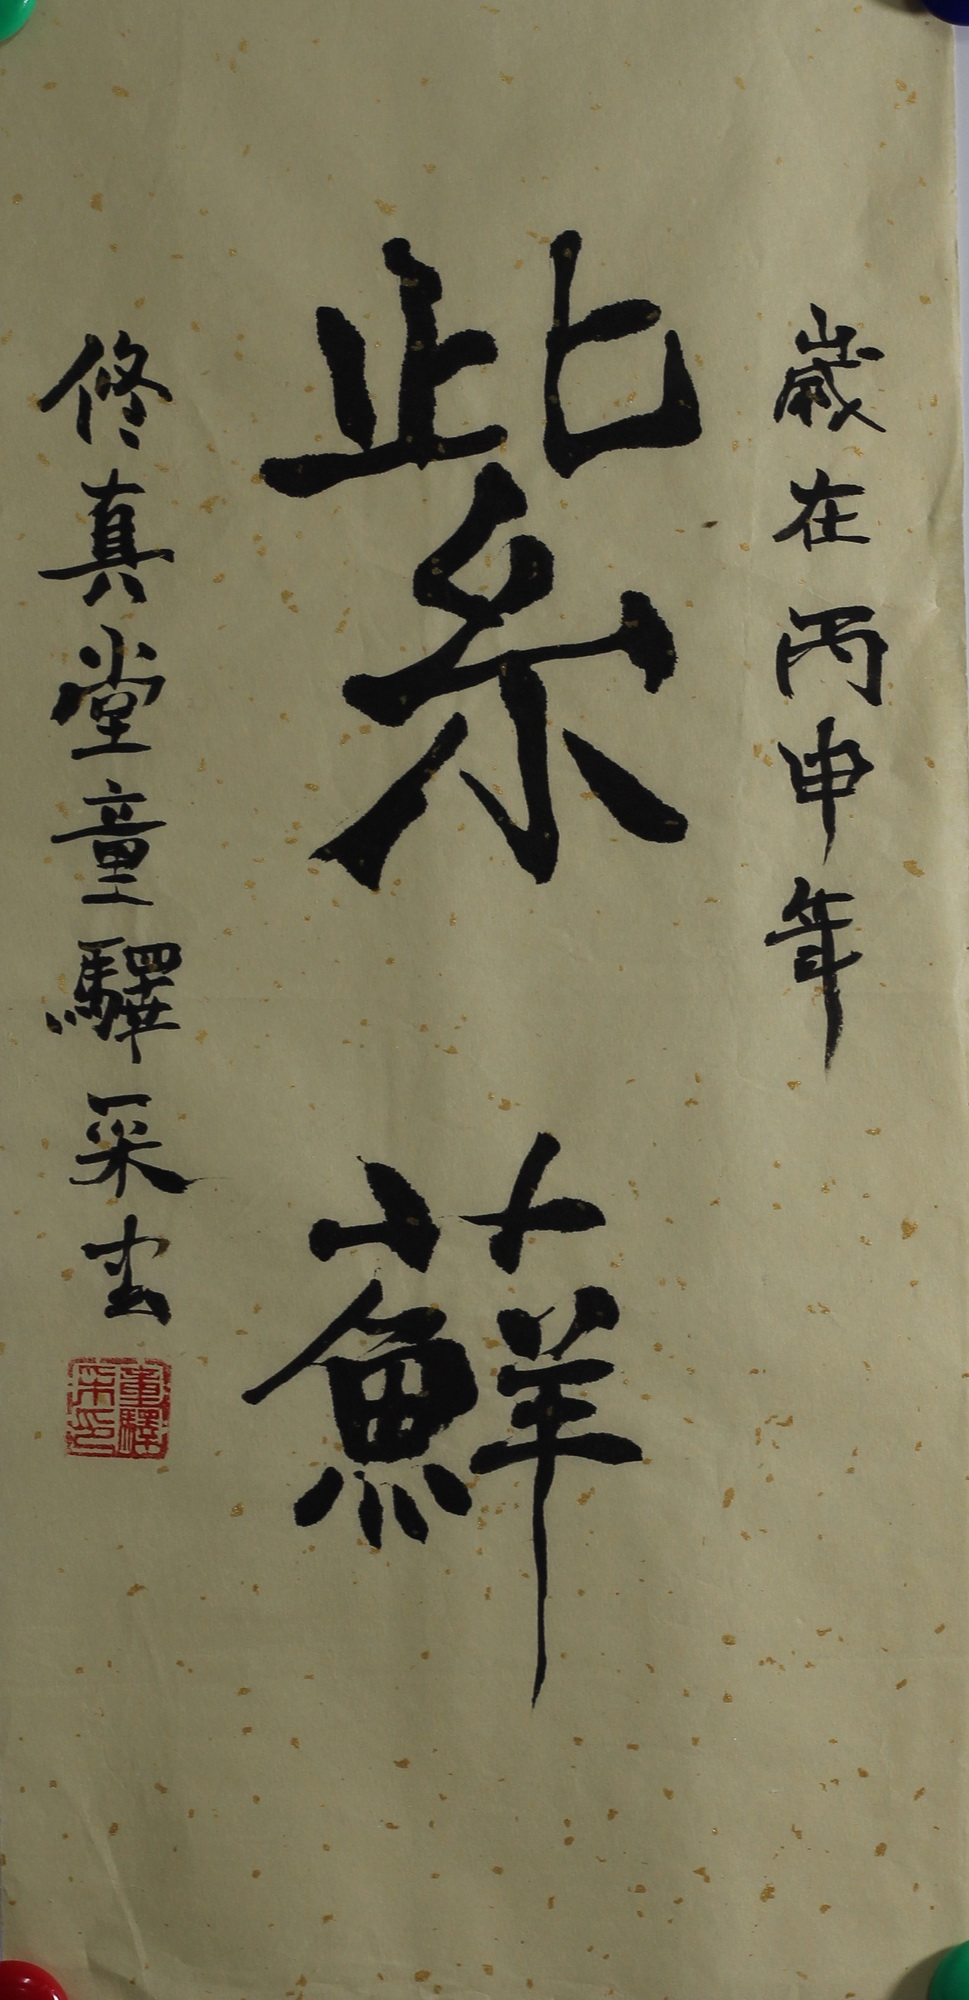 歲在丙申年
紫蘚
修真堂童驛采书
童驛采印